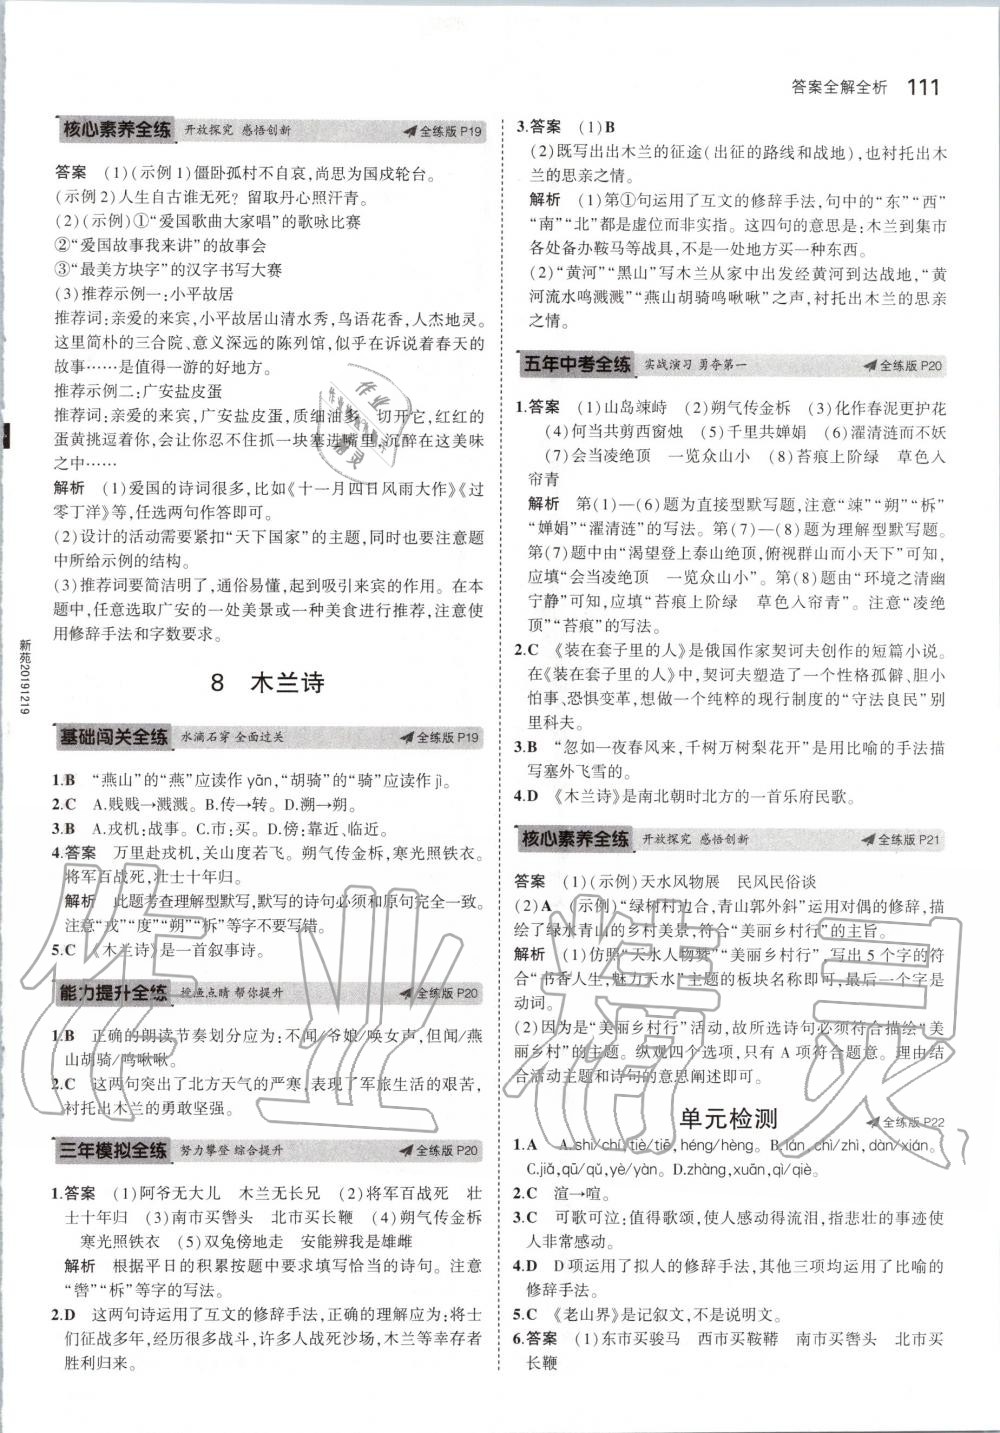 答案全解全析 111
核心素养全练 开放探究 感悟创新 全练版 P19
答案 (1)(示例1)僵卧孤村不自哀,尚思为国戍轮台。
(示例2)人生自古谁无死?留取丹心照汗青。
(2)(示例)①“爱国歌曲大家唱”的歌咏比赛
②“爱国故事我来讲”的故事会
③“最美方块字”的汉字书写大赛
(3)推荐示例一:小平故居
推荐词:亲爱的来宾,小平故居山清水秀,鸟语花香,人杰地灵。
这里简朴的三合院、意义深远的陈列馆,似乎在诉说着春天的
故事……是值得一游的好地方。
推荐示例二:广安盐皮蛋
推荐词:亲爱的来宾,广安盐皮蛋,质细油多,切开它,红红的
蛋黄挑逗着你,会让你忍不住抓一块塞进嘴里,沉醉在这美味
之中……
解析 (1)爱国的诗词很多,比如《十一月四日风雨大作》《过
零丁洋》等,任选两句作答即可。
(2)设计的活动需要紧扣“天下国家”的主题,同时也要注意题
中所给示例的结构。
(3)推荐词要简洁明了,通俗易懂,起到吸引来宾的作用。在本
题中,任意选取广安的一处美景或一种美食进行推荐,注意使
用修辞手法和字数要求。
8 木兰诗
基础闯关全练 水滴石穿 全面过关 全练版 P19
1.B “燕山”的“燕”应读作 yān,“胡骑”的“骑”应读作 jì。
2.C A.贱贱→溅溅。B.传→转。D.溯→朔。
3.B A.戎机:战事。C.市:买。D.傍:靠近、临近。
4.答案 万里赴戎机,关山度若飞。朔气传金柝,寒光照铁衣。
将军百战死,壮士十年归。
解析 此题考查理解型默写,默写的诗句必须和原句完全一致。
注意“戎”“度”“朔”“柝”等字不要写错。
5.C 《木兰诗》是一首叙事诗。
能力提升全练 挖渔点睛 帮你提升 全练版 P20
1.B 正确的朗读节奏划分应为:不闻/爷娘/唤女声,但闻/燕
山胡骑/鸣啾啾。
2.C 这两句突出了北方天气的严寒,表现了军旅生活的艰苦,
衬托出木兰的勇敢坚强。
三年模拟全练 努力攀登 综合提升 全练版 P20
1.答案 (1)阿爷无大儿 木兰无长兄 (2)将军百战死 壮
士十年归 (3)南市买辔头 北市买长鞭 (4)朔气传金柝
寒光照铁衣 (5)双兔傍地走 安能辨我是雄雌
解析 根据平日的积累按题中要求填写恰当的诗句。注意
“辔”“柝”等字的写法。
2.D 这两句诗运用了互文的修辞手法,正确的理解应为:将士
们征战多年,经历很多战斗,许多人战死沙场,木兰等幸存者
胜利归来。
3.答案 (1)B
(2)既写出出木兰的征途(出征的路线和战地),也衬托出木
兰的思亲之情。
解析 (1)第①句运用了互文的修辞手法,句中的“东”“西”
“南”“北”都是虚位而非实指。这四句的意思是:木兰到集市
各处备办鞍马等战具,不是一处地方买一种东西。
(2)“黄河”“黑山”写木兰从家中出发经黄河到达战地,“黄
河流水鸣溅溅”“燕山胡骑鸣啾啾”之声,衬托出木兰的思亲
之情。
五年中考全练 实战演习 勇夺第一 全练版 P20
1.答案 (1)山岛竦峙 (2)朔气传金柝 (3)化作春泥更护花
(4)何当共剪西窗烛 (5)千里共婵娟 (6)濯清涟而不妖
(7)会当凌绝顶 一览众山小 (8)苔痕上阶绿 草色入
帘青
解析 第(1)—(6)题为直接型默写题,注意“竦”“朔”“柝”
“婵娟”“濯清涟”的写法。第(7)—(8)题为理解型默写题。
第(7)题中由“渴望登上泰山绝顶,俯视群山而小天下”可知,
应填“会当凌绝顶 一览众山小”。第(8)题由“环境之清幽
宁静”可知,应填“苔痕上阶绿 草色入帘青”。注意“凌绝
顶”“苔痕”的写法。
2.C 《装在套子里的人》是俄国作家契诃夫创作的短篇小说。
在《装在套子里的人》中,契诃夫塑造了一个性格孤僻、胆小
怕事、恐惧变革,想做一个纯粹的现行制度的“守法良民”别
里科夫。
3.B “忽如一夜春风来,千树万树梨花开”是用比喻的手法描
写塞外飞雪的。
4.D 《木兰诗》是南北朝时北方的一首乐府民歌。
核心素养全练 开放探究 感悟创新 全练版 P21
答案 (1)(示例)天水风物展 民风民俗谈
(2)A (示例)“绿树村边合,青山郭外斜”运用对偶的修辞,描
绘了绿水青山的乡村美景,符合“美丽乡村行”的主旨。
解析 (1)仿照“天水人物赞”“美丽乡村行”,写出5个字的符
合“书香人生,魅力天水”主题的板块名称即可,最后一个字是
动词。
(2)因为是“美丽乡村行”活动,故所选诗句必须符合描绘“美
丽乡村”的主题。纵观四个选项,只有 A 项符合题意。理由结
合活动主题和诗句的意思阐述即可。
单元检测 全练版 P22
1.A A.shì/chǐ,tiè/tiē,héng/hèng。B.lán,chì/zhì,dàn/xián。
C.jiǎ,qū/qǔ,yè/yàn。D.zhàng,xuān,qì/qiè。
2.C 渲→喧。
3.C 可歌可泣:值得歌颂,使人感动得流泪,指悲壮的事迹使
人非常感动。
4.D D项运用了拟人的修辞手法,其他三项均运用了比喻的
修辞手法。
5.C 《老山界》是记叙文,不是说明文。
6.答案 (1)东市买骏马 西市买鞍鞯 南市买辔头 北市买
长鞭
新苑20191219
作业精灵